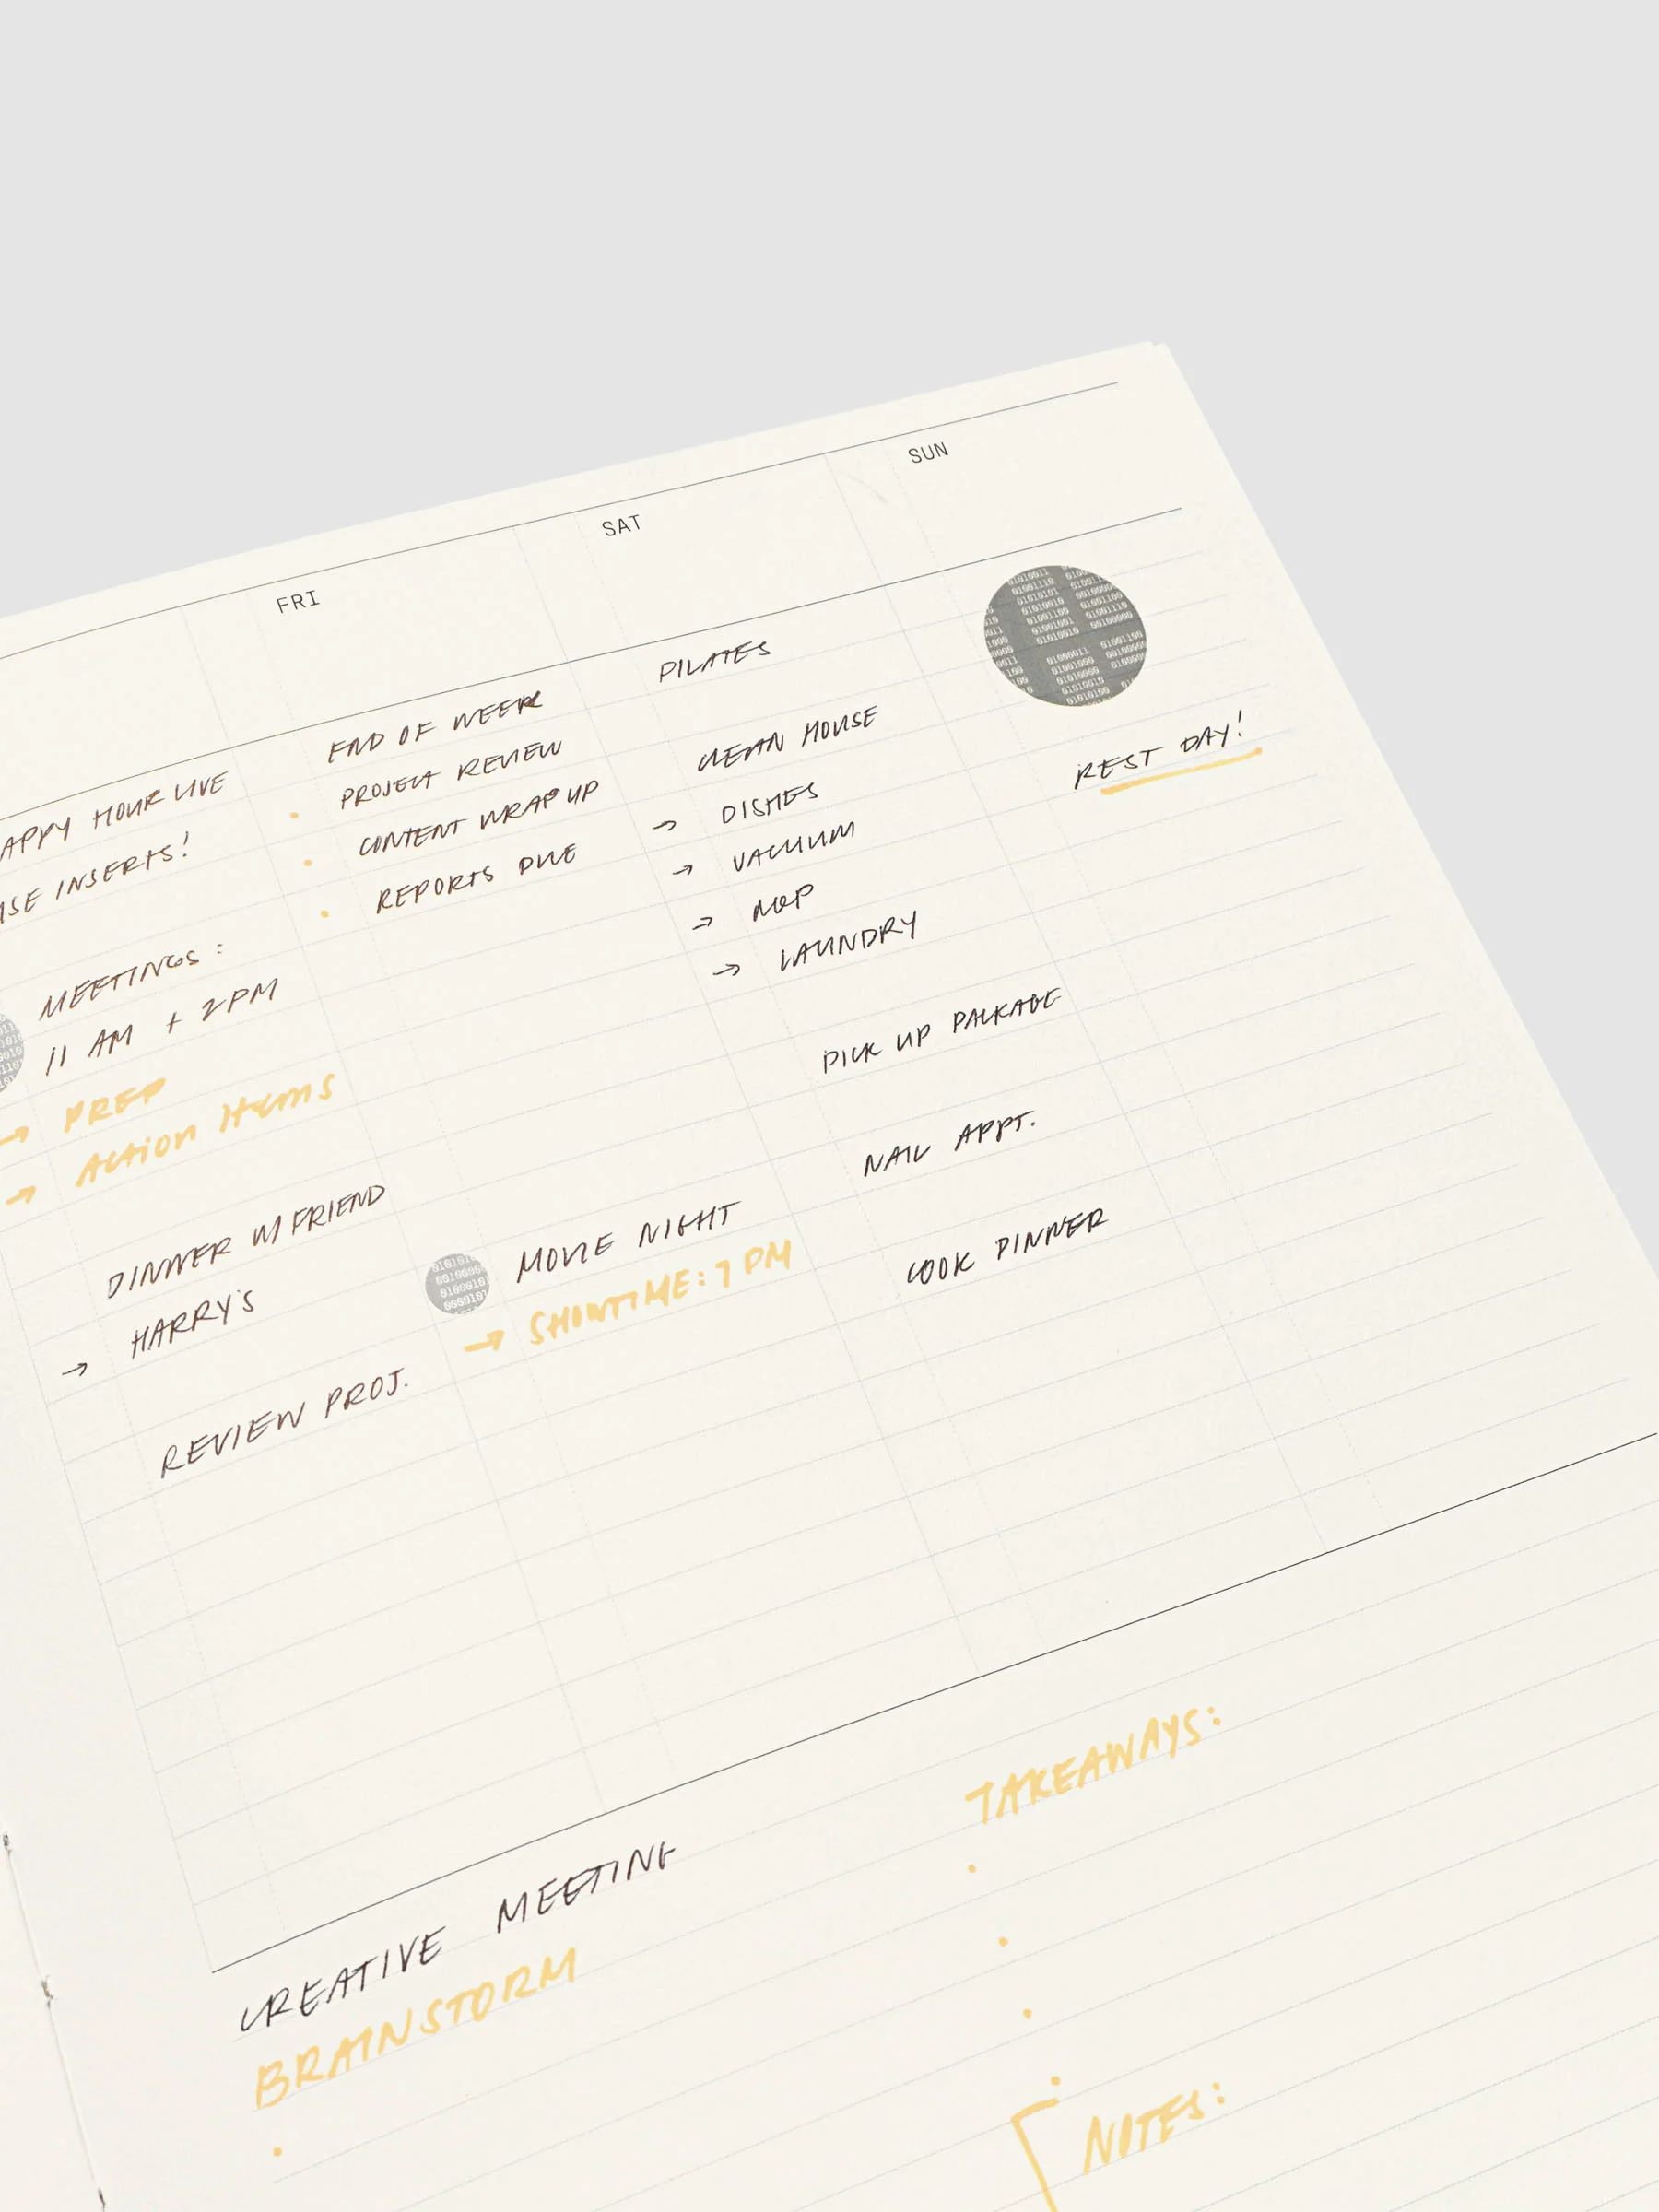 FRI
SAT
SUN
APPY HOUR LIVE
SE INSERTS!
MEETINGS:
11 AM + 2PM
→ PREP
→ Action Items
DINNER W/ FRIEND
→ HARRY'S
REVIEW PROJ.
END OF WEEK
• PROJECT REVIEW
• CONTENT WRAP UP
• REPORTS DUE
MOVIE NIGHT
→ SHOWTIME: 7 PM
PILATES
CLEAN HOUSE
→ DISHES
→ VACUUM
→ MOP
→ LAUNDRY
PICK UP PACKAGE
NAIL APPT.
COOK DINNER
REST DAY!
CREATIVE MEETING
BRAINSTORM
TAKEAWAYS:
NOTES: